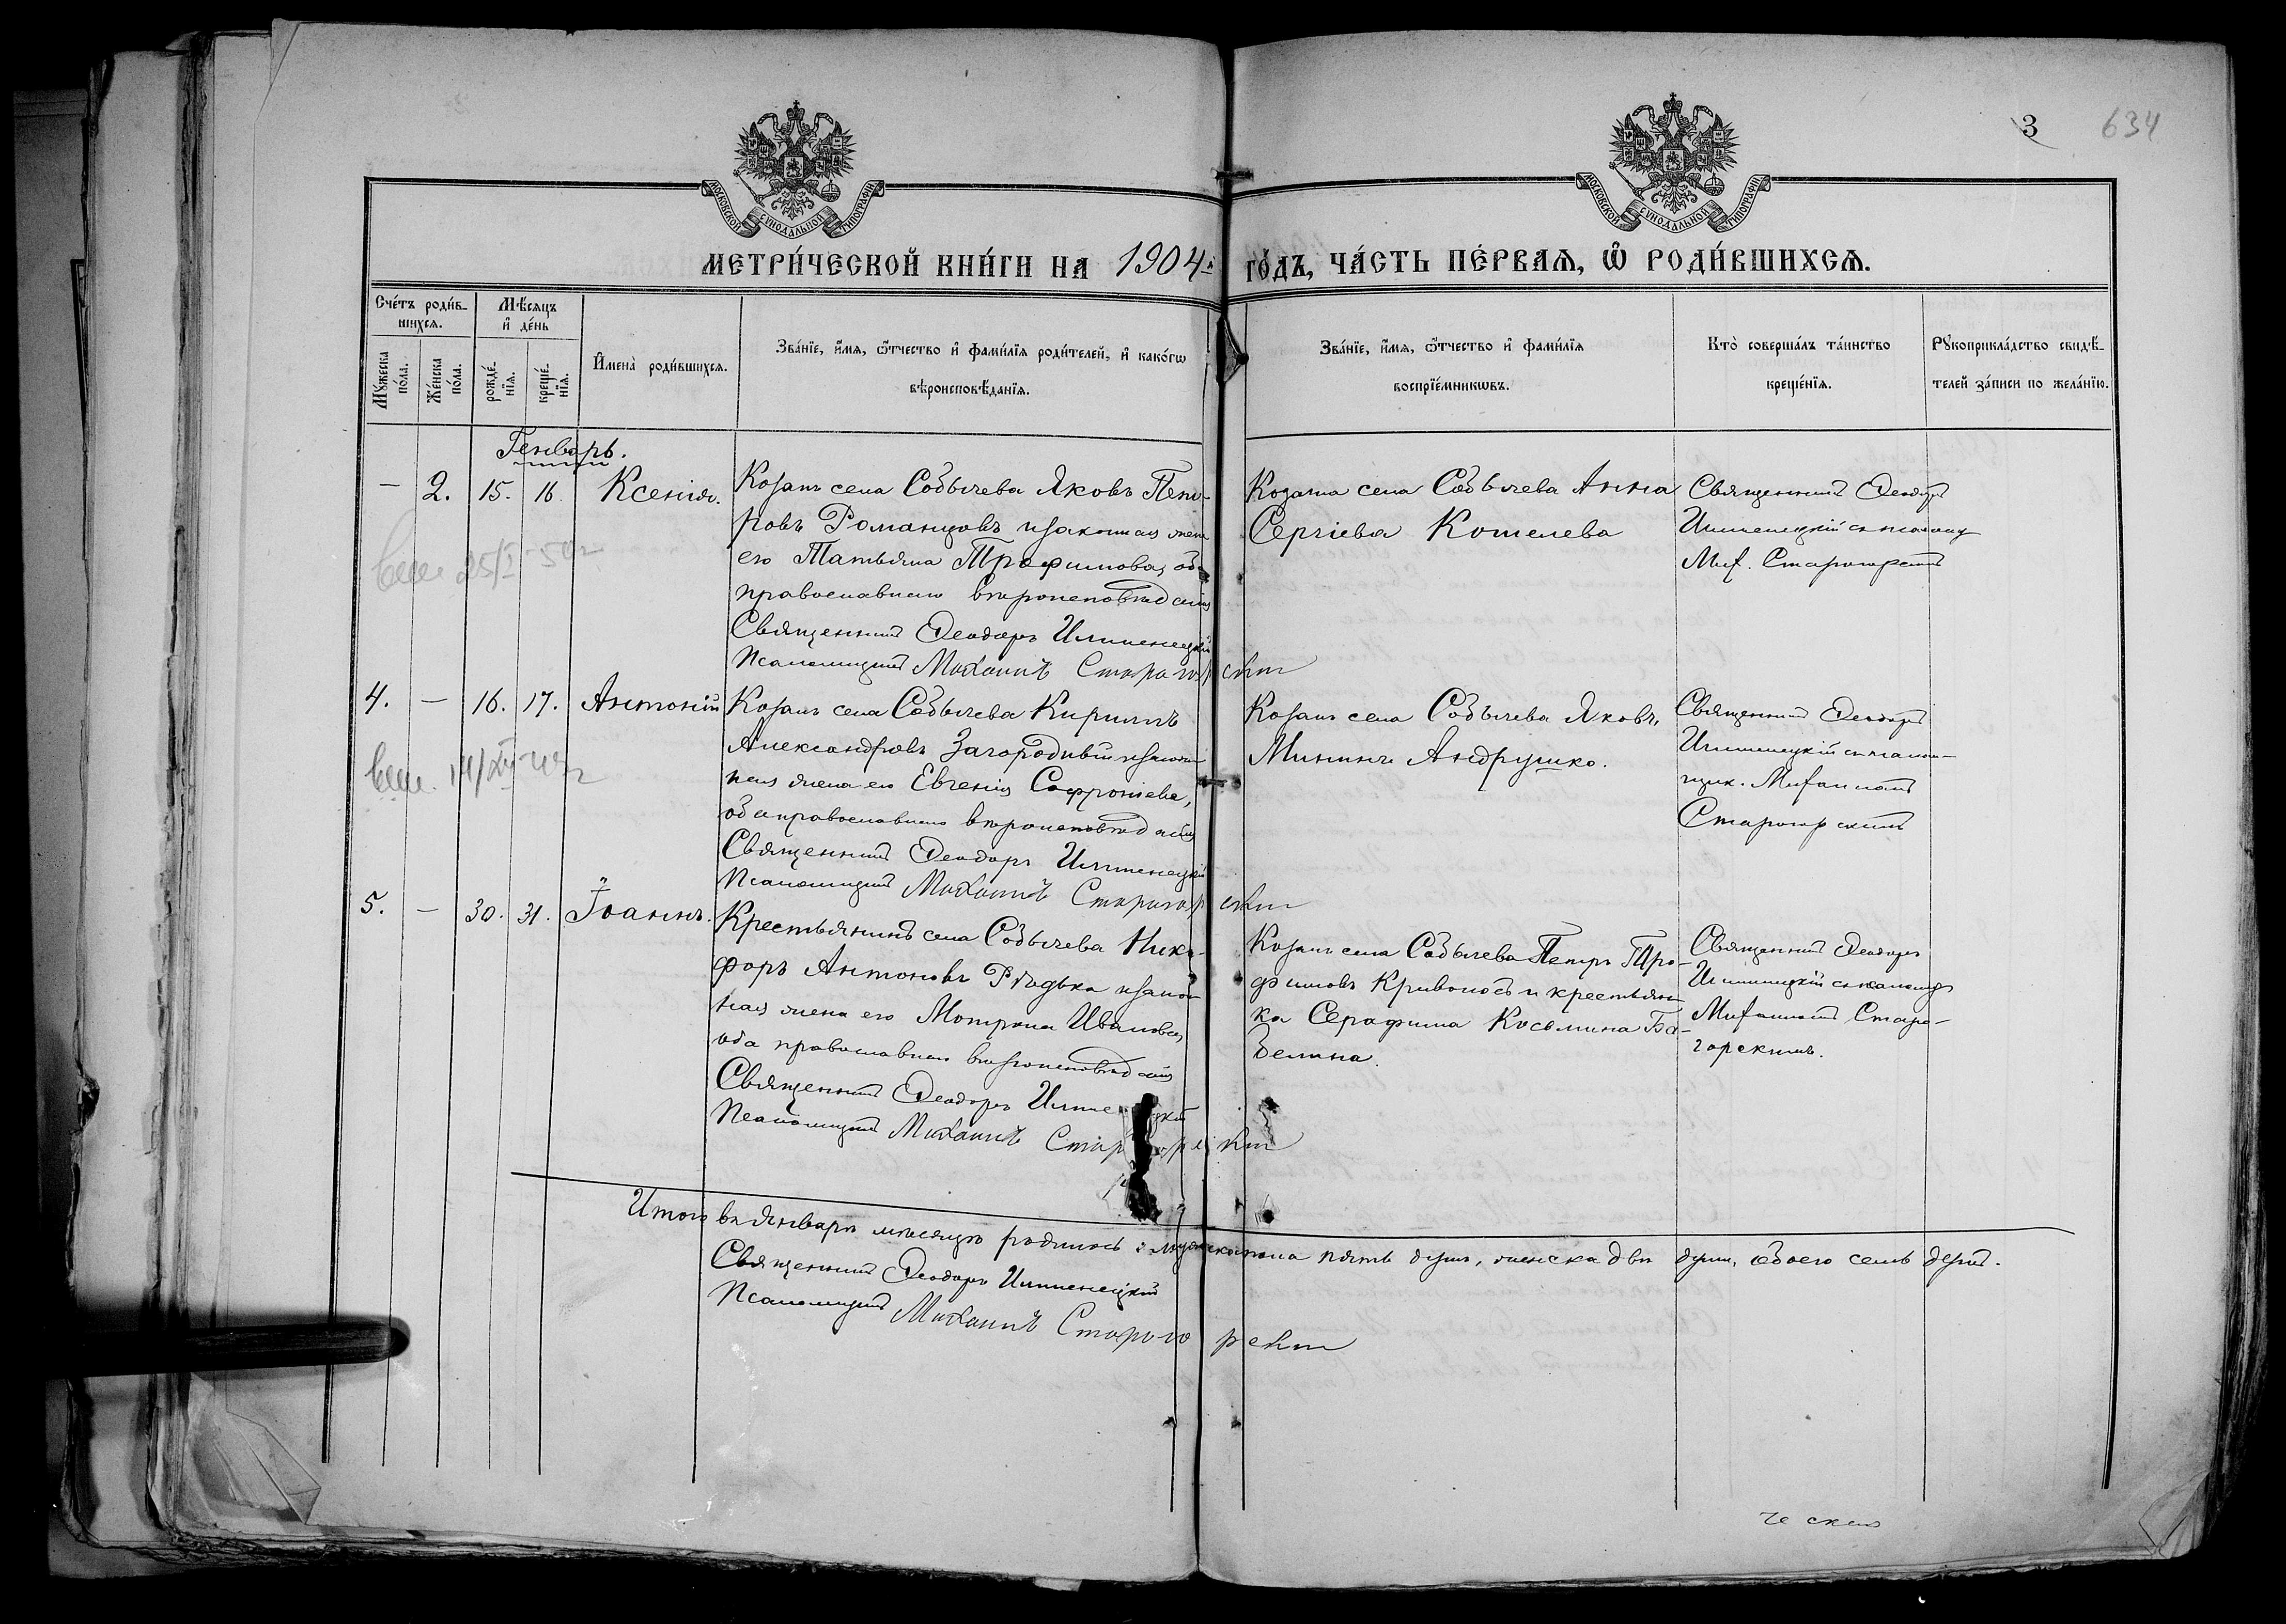 3
634
МОСКОВСКОЙ СѴНОДАЛЬНОЙ ТИПОГРАФІИ
МОСКОВСКОЙ СѴНОДАЛЬНОЙ ТИПОГРАФІИ
МЕТРИ́ЧЕСКОЙ КНИ́ГИ НА 1904 й ГО́ДЪ, ЧА́СТЬ ПЕ́РВАѦ, Ѡ҆ РОДИ́ВШИХСѦ.
Сче́тъ роди́в-
шихсѧ.
Мꙋ́жеска по́ла.
Же́нска по́ла.
Мѣ́сѧцъ
и҆ де́нь
рожде́-
нїѧ.
креще́-
нїѧ.
И҆мена̀ роди́вшихсѧ.
Зва́нїе, и҆́мѧ, ѻ҆́тчество и҆ фами́лїѧ роди́телей, и҆ како́гѡ
вѣроисповѣ́данїѧ.
Зва́нїе, и҆́мѧ, ѻ҆́тчество и҆ фами́лїѧ
воспрїе́мникѡвъ.
Кто̀ соверша́лъ та́инство
креще́нїѧ.
Рꙋкоприкла́дство свидѣ́-
телей за́писи по жела́нїю.
Генварь.
— 2. 15. 16. Ксенія.
Козакъ села Собычева Яковъ Пет-
ровъ Романцовъ и законная жена
его Татьяна Трофимова, оба
православнаго вѣроисповѣданія
Священникъ Ѳеодоръ Ильменецкій
Псаломщикъ Михаилъ Старогорскій
Козачка села Собычева Анна
Сергіева Кошелева
Священникъ Ѳеодоръ
Ильменецкій съ псаломщ
Мих. Старогорскимъ
25/I 50 г
4. — 16. 17. Антоній
Козакъ села Собычева Кириллъ
Александровъ Загородній и закон-
ная жена его Евгенія Софроніева,
оба православнаго вѣроисповѣданія
Священникъ Ѳеодоръ Ильменецкій
Псаломщикъ Михаилъ Старогорскій
Козакъ села Собычева Яковъ
Мининъ Андрушко.
Священникъ Ѳеодоръ
Ильменецкій съ псалом-
щик. Михаиломъ
Старогорскимъ
5. — 30. 31. Іоаннъ.
Крестьянинъ села Собычева Ники-
форъ Антоновъ Рѣдька и закон-
ная жена его Матрона Иванова,
оба православнаго вѣроисповѣданія
Священникъ Ѳеодоръ Ильменецкій
Псаломщикъ Михаилъ Старогорскій
Козакъ села Собычева Петръ Тро-
фимовъ Кривоносъ и крестьян-
ка Серафима Косьмина Ба-
белина.
Священникъ Ѳеодоръ
Ильменецкій съ псаломщ
Михаиломъ Старо-
горскимъ.
Итого въ Январѣ мѣсяцѣ родилось: мужеска пола пять душъ, женска двѣ души, обоего семь душъ.
Священникъ Ѳеодоръ Ильменецкій
Псаломщикъ Михаилъ Старогорскій